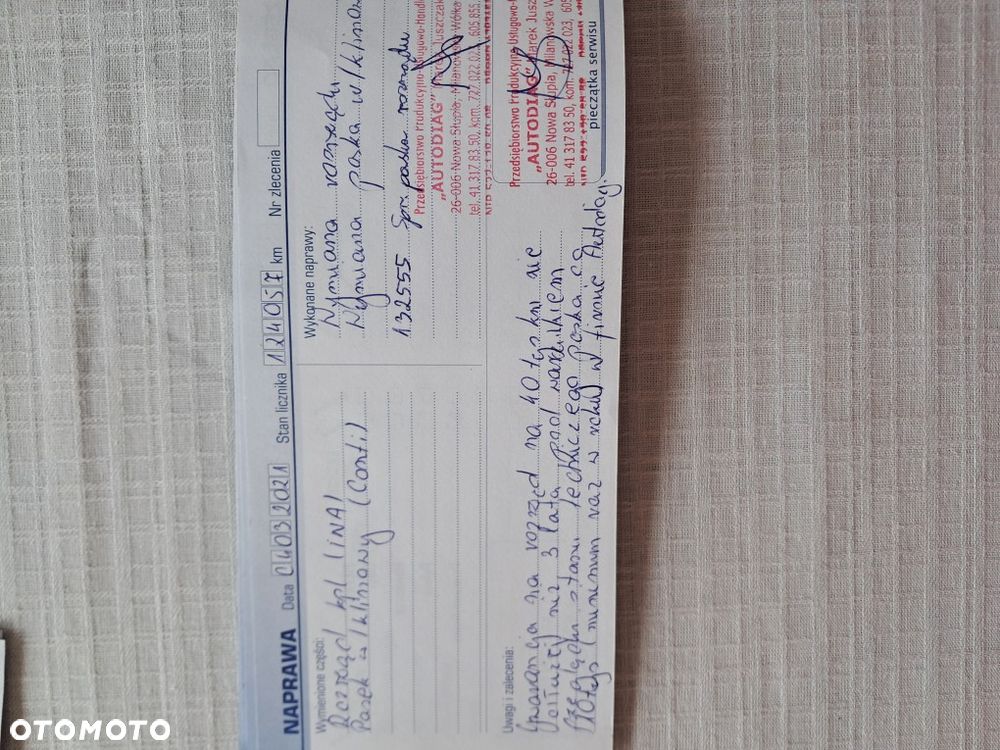 NAPRAWA Data 04032021 Stan licznika 124057 km Nr zlecenia
Wymienione części:
Rozrząd kpl (INA)
Pasek w/klinowy (Conti)
Wykonane naprawy:
Wymiana rozrządu
Wymiana paska w/klinow
132555 Spr. paska rozrządu
Przedsiębiorstwo Produkcyjno-Usługowo-Handl
"AUTODIAG" Marek Juszczak
26-006 Nowa Słupia, Milanowska Wólka
tel. 41 317 83 50, kom. 727 022 023, 605 855
Uwagi i zalecenia:
Gwarancja na rozrząd na 40 tys km nie
dłużej niż 3 lata pod warunkiem
przeglądu stanu technicznego paska co
10 tys (minimum raz w roku) w firmie Autodiag.
Przedsiębiorstwo Produkcyjno Usługowo-H
"AUTODIAG" Marek Jusz
26-006 Nowa Słupia, Milanowska W
tel. 41 317 83 50, kom. 727 022 023, 605
pieczątka serwisu
OTOMOTO